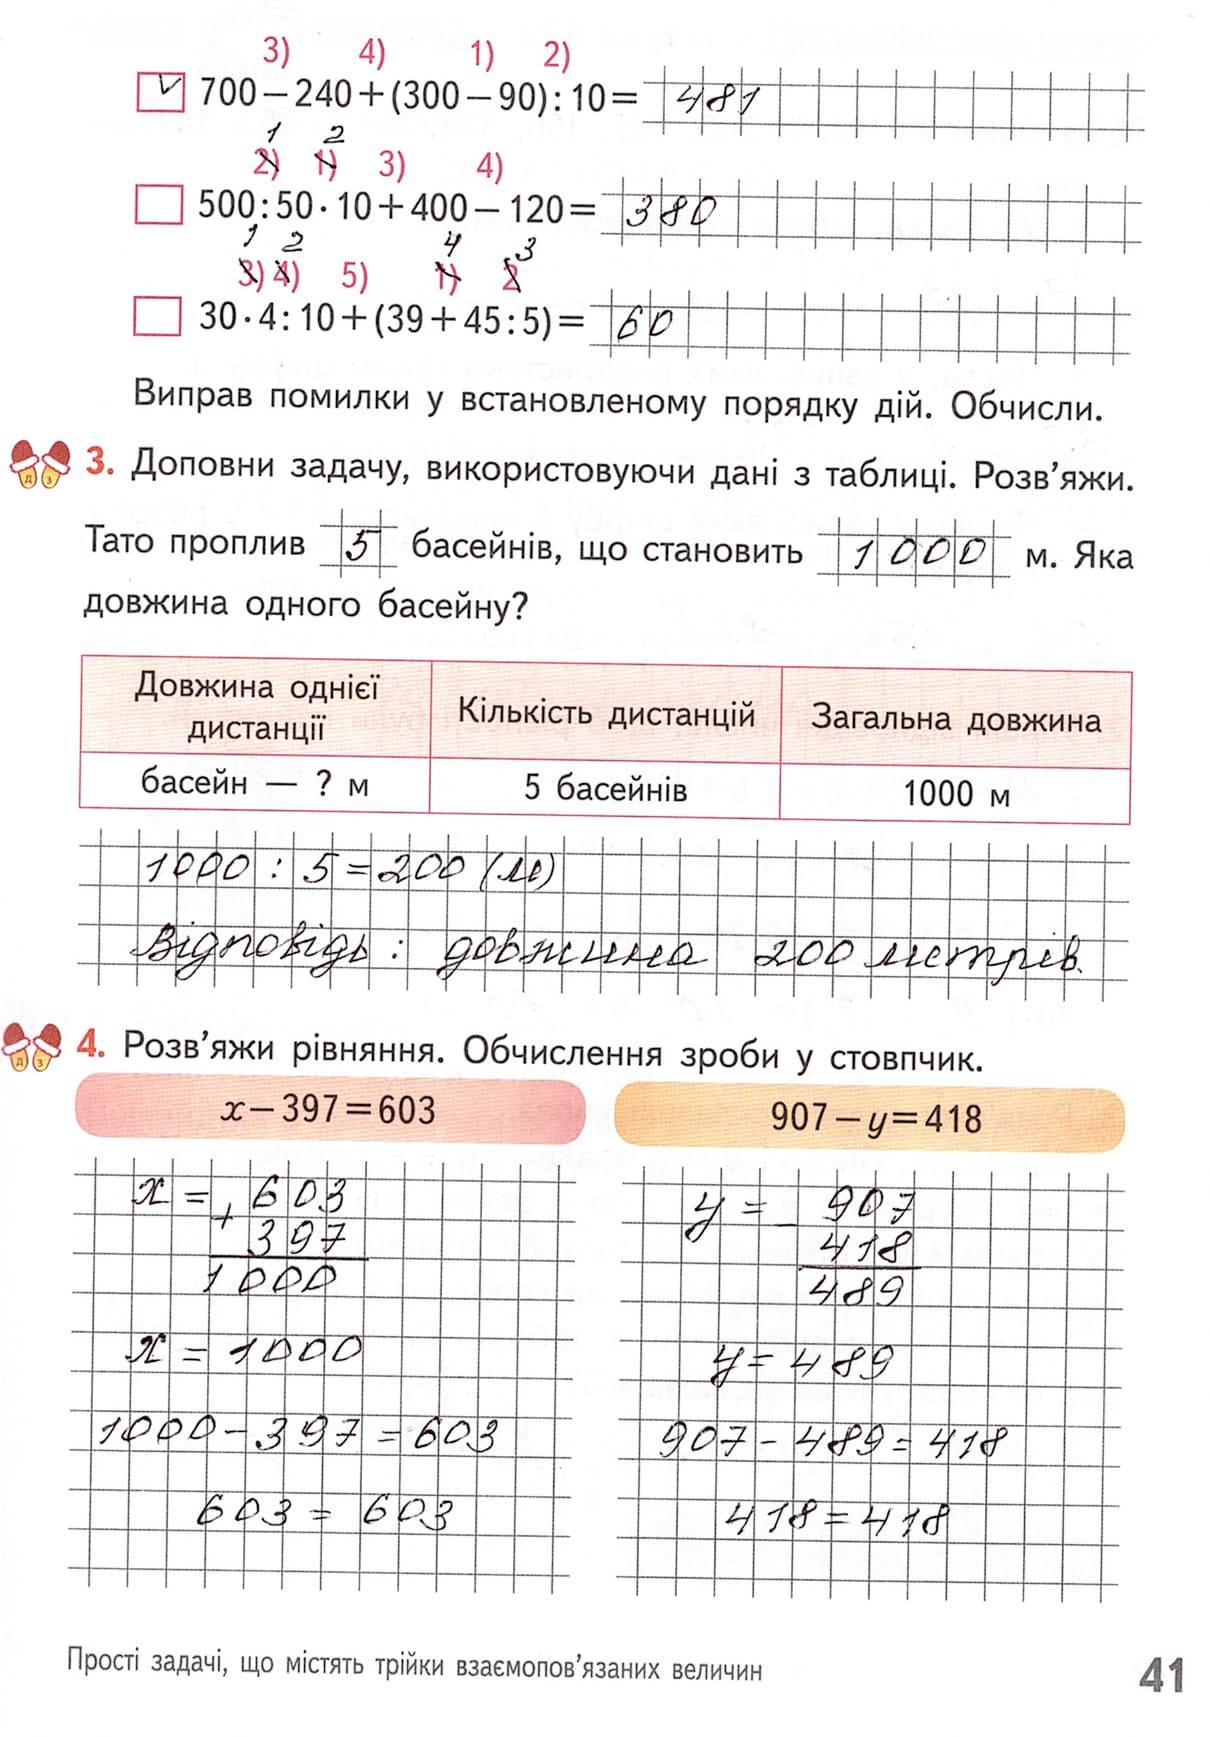 3) 4) 1) 2)
700 – 240 + (300 – 90) : 10 = 481
1 2
2) 1) 3) 4)
500 : 50 · 10 + 400 – 120 = 380
1 2 4 3
3) 4) 5) 1) 2
30 · 4 : 10 + (39 + 45 : 5) = 60
Виправ помилки у встановленому порядку дій. Обчисли.
Д З 3. Доповни задачу, використовуючи дані з таблиці. Розв'яжи.
Тато проплив 5 басейнів, що становить 1000 м. Яка
довжина одного басейну?
Довжина однієї дистанції Кількість дистанцій Загальна довжина
басейн — ? м 5 басейнів 1000 м
1000 : 5 = 200 (м)
Відповідь : довжина 200 метрів.
Д З 4. Розв'яжи рівняння. Обчислення зроби у стовпчик.
x – 397 = 603 907 – y = 418
x = + 603 y = – 907
397 418
1000 489
x = 1000 y = 489
1000 – 397 = 603 907 – 489 = 418
603 = 603 418 = 418
Прості задачі, що містять трійки взаємопов'язаних величин 41